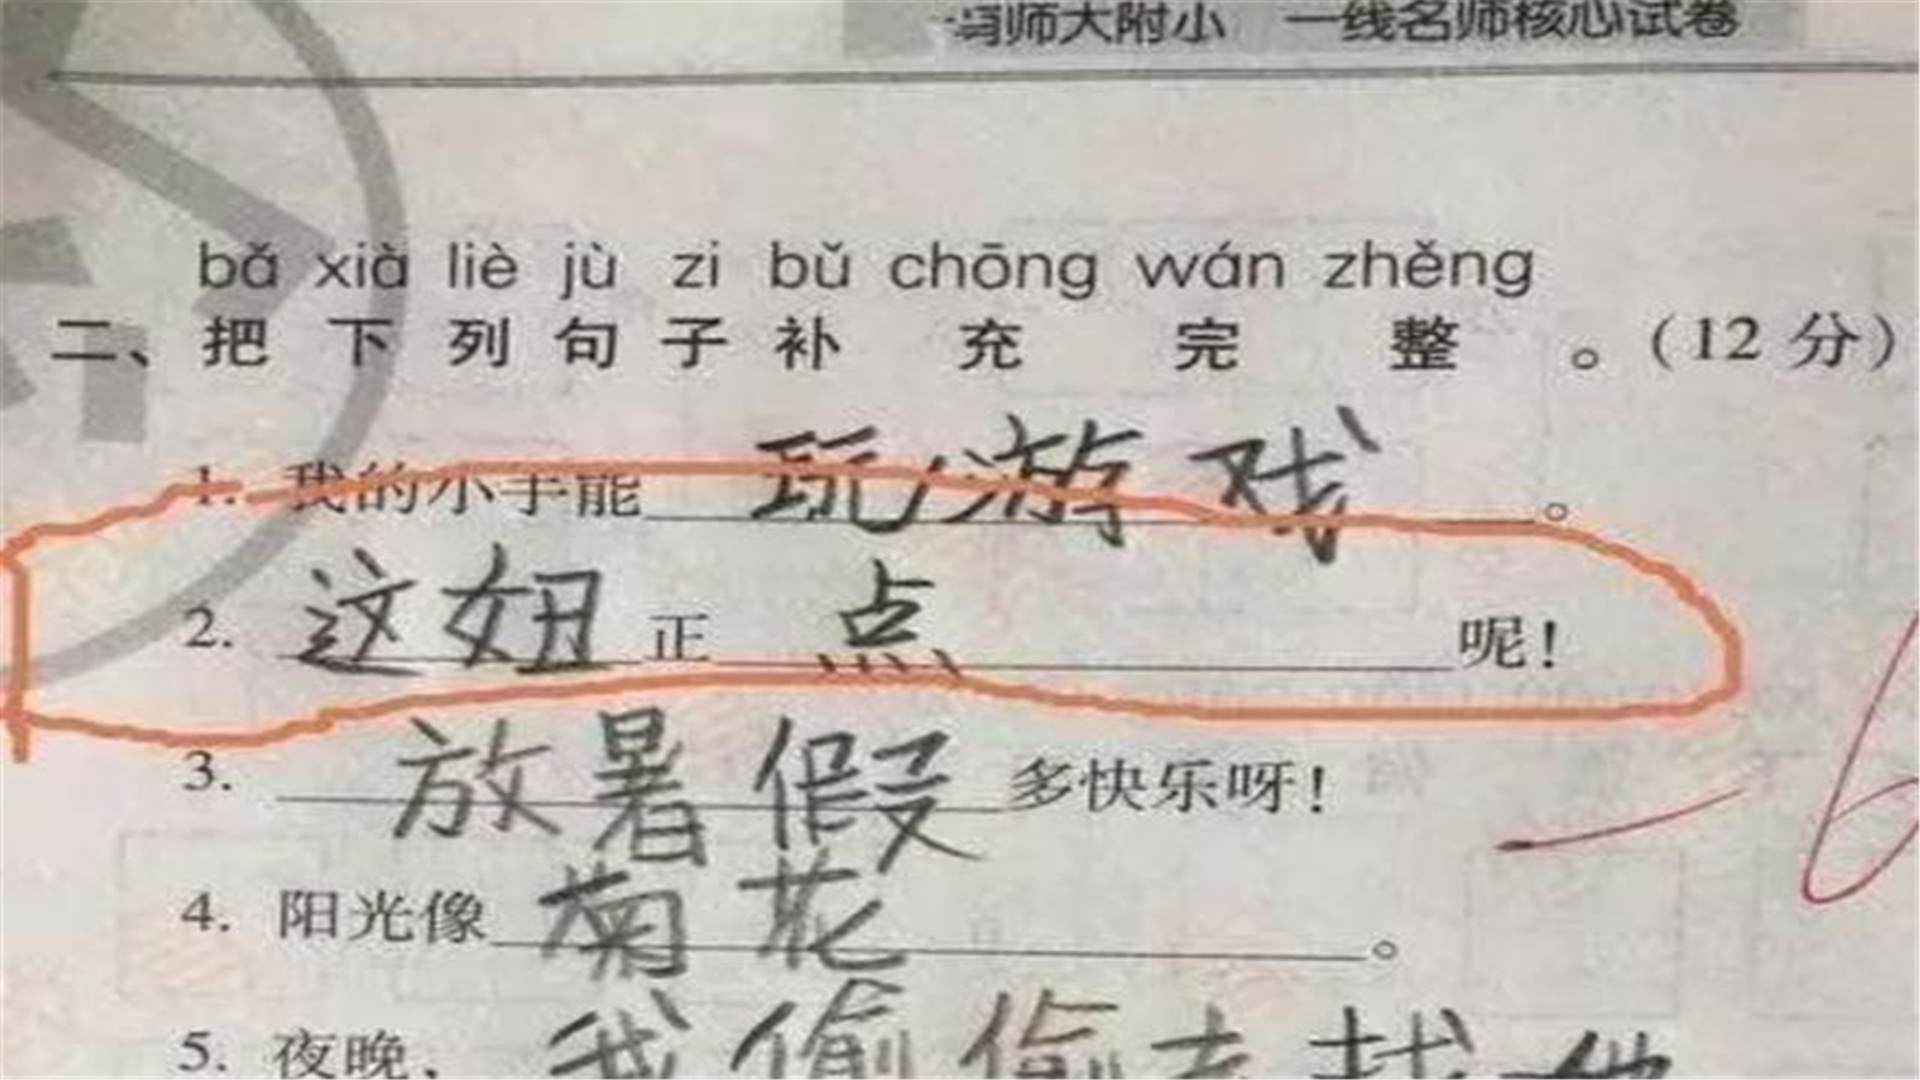 师大附小 一线名师核心试卷
bǎ xià liè jù zi bǔ chōng wán zhěng
二、把下列句子补充完整。(12分)
1. 我的小手能玩游戏。
2. 这妞正点呢!
3. 放暑假多快乐呀!
4. 阳光像菊花。
5. 夜晚,我偷偷去找他
-6